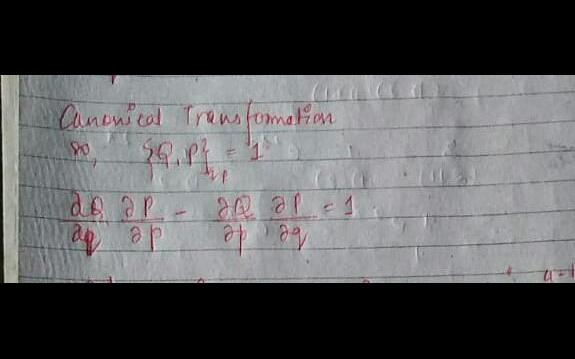 Canonical Transformation
so, {Q, P}qp = 1
∂Q/∂q ∂P/∂p - ∂Q/∂p ∂P/∂q = 1